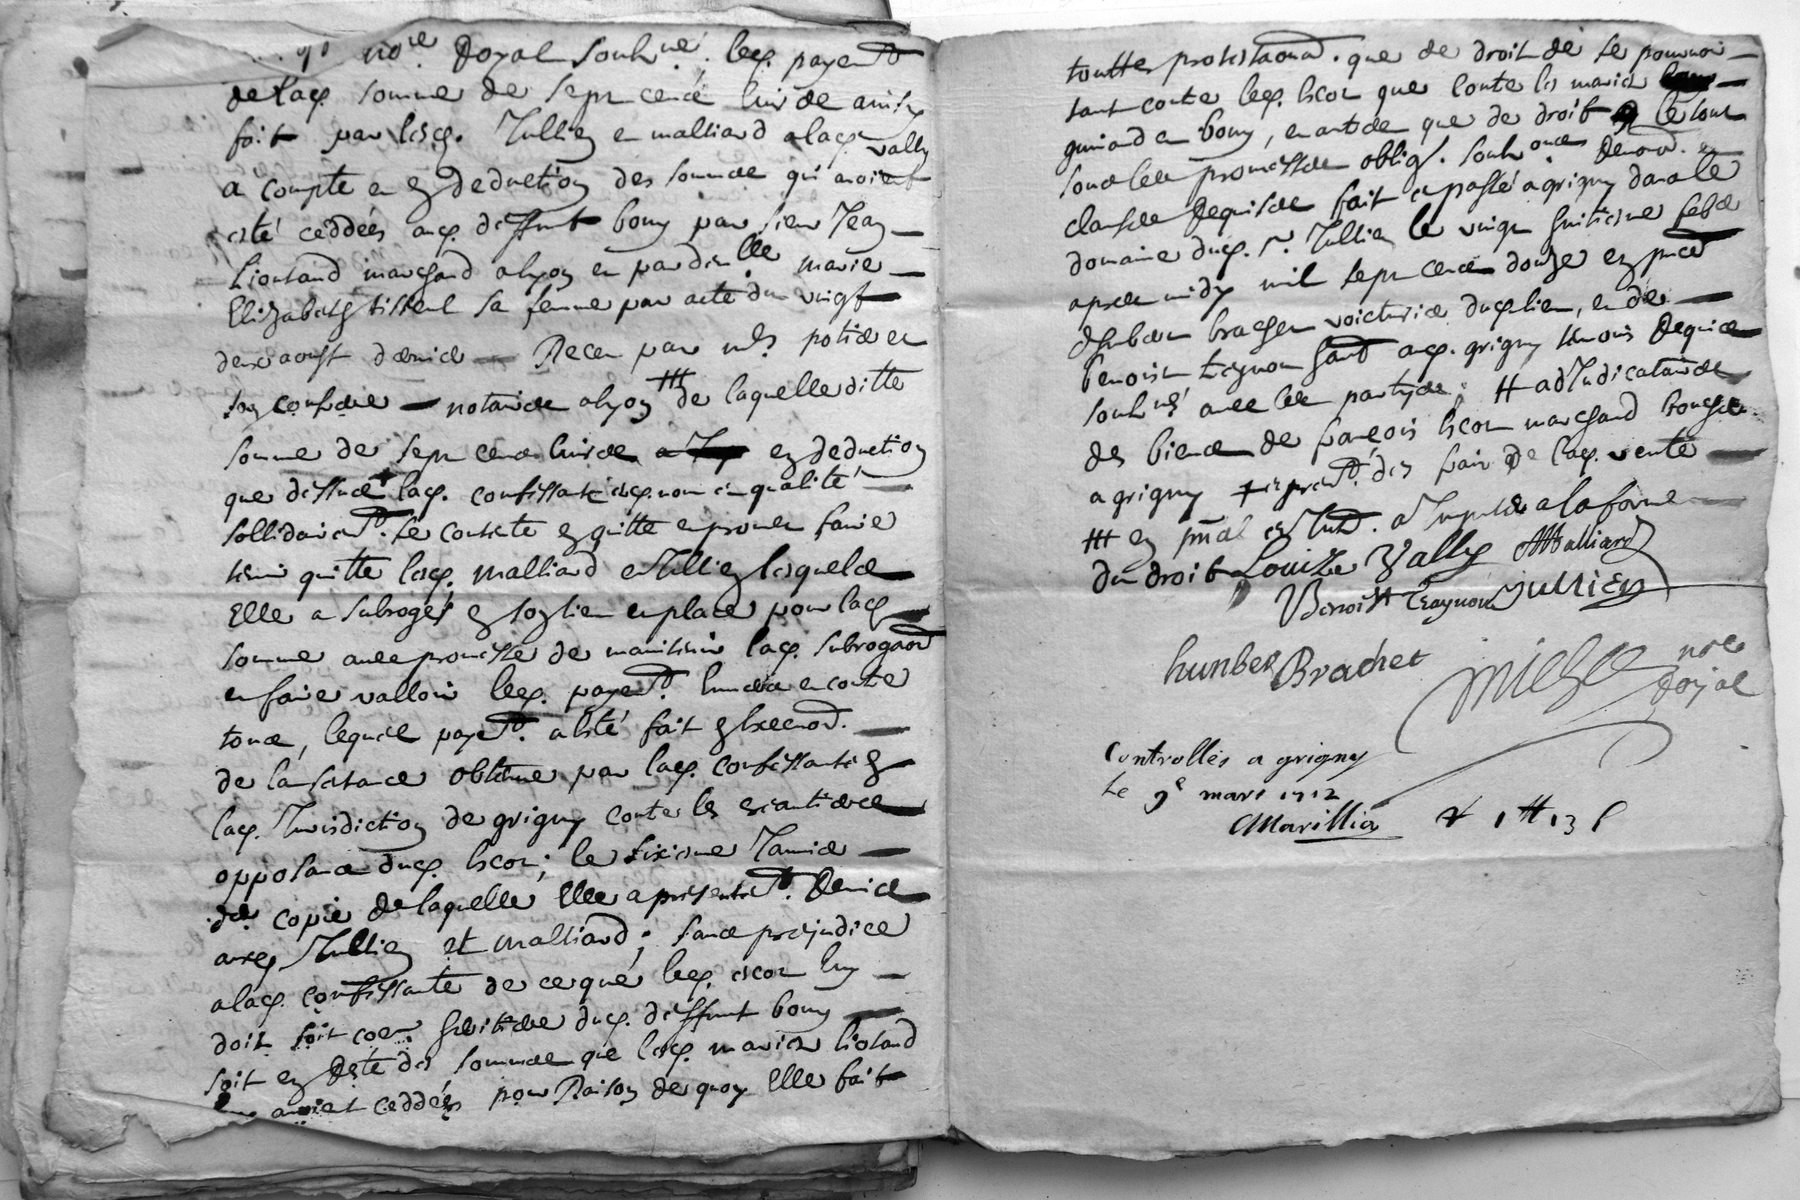 no.re Royal soub.né. led. payem.t
de lad. somme de sept cens livres ainsy
fait par lesd. Jullien et malliard a lad. vally
a compte et en deduction des sommes qui avoient
esté ceddées aud. deffunt bouy par sieur Jean
Liontard marchand a lyon et par d.lle marie
Elizabeth tisseul sa femme par acte du vingt
deux aoust dernier Receu par m.e potier et
son confrere notaires a lyon ttt de laquelle ditte
somme de sept cens livres en deduction
que dessus lad. confessante esd. nom et qualité
sollidairem.t se contente en quitte et promet faire
tenir quitte lesd. malliard et Jullien lesquels
Elle a subrogés en son lieu et place pour lad.
somme avec promesse de maintenir lad. subrogaon
et faire valloir led. payem.t envers et contre
tous, lequel payem.t a esté fait en execuon.
de la sentance obtenue par lad. confessante en
lad. Jurisdiction de grigny contre les
opposans dud. escot; le sixieme Janvier
de copie de laquelle Elle a presentem.t Remise
auxd. Jullien et malliard; sans prejudice
a lad. confessante de ce que led. escot luy
doit soit co.e heritiere dud. deffunt bouy
soit en Reste des sommes que lesd. mariés liotard
avoient ceddées pour Raison de quoy Elle fait
touttes protestaons. que de droit de se pourvoir
tant contre led. escot que contre les mariés
et bouy, et autres que de droit le tout
sous les promesses oblig. soub.ons Renons. et
clauses Requises fait et passé a grigny dans le
domaine dud. s.r Jullien le vingt huitieme feb.er
apres midy mil sept cens douze en pnce
d'hubert brachet voicturier dud. lieu, et de
benoist traynou hant aud. grigny temoins Requis
soub.nés avec les partyes; tt adJudicataires
des biens de françois escot marchand boucher
a grigny des frais de lad. vente
ttt en a la forme
du droit Louize Vally Malliard
Benoist Traynou Jullien
hunber Brachet
Michel no.re
Royal
Controllés a grigny
le 9e mars 1712
Marillia R 1 tt 13 s